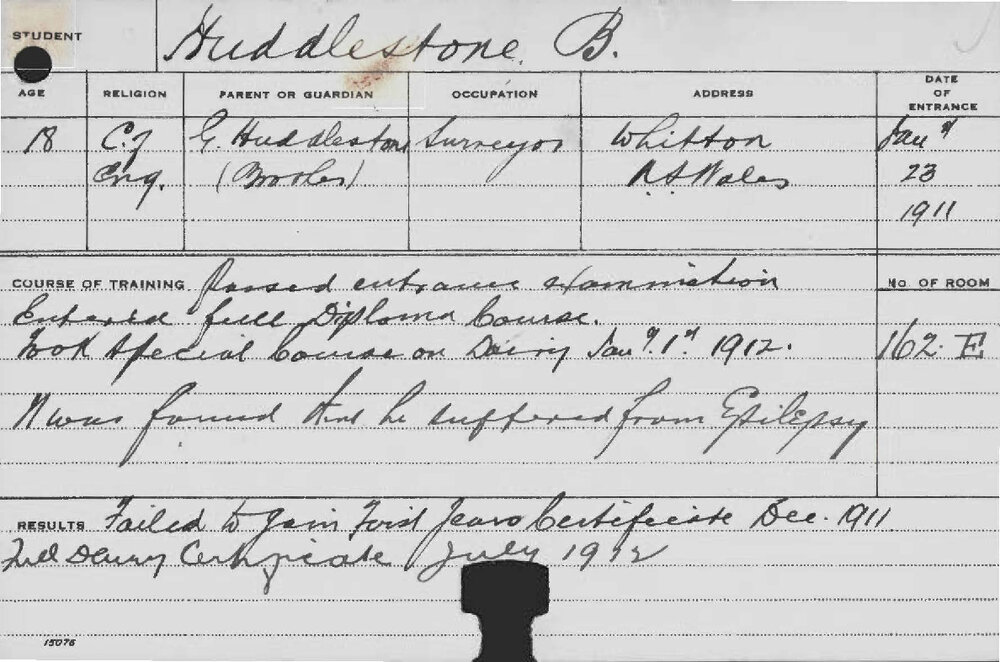 STUDENT Huddlestone, B.
AGE RELIGION PARENT OR GUARDIAN OCCUPATION ADDRESS DATE OF ENTRANCE
18 C. of G. Huddlestone Surveyor Whitton Jany
Eng. (Brother) N.S. Wales 23
1911
COURSE OF TRAINING Passed entrance examination NO. OF ROOM
Entered full Diploma Course.
Took special Course on Dairy Jany. 1st 1912. 162. E
It was found that he suffered from Epilepsy
RESULTS Failed to gain First Years Certificate Dec. 1911
Full Dairy Certificate July 1912
15076